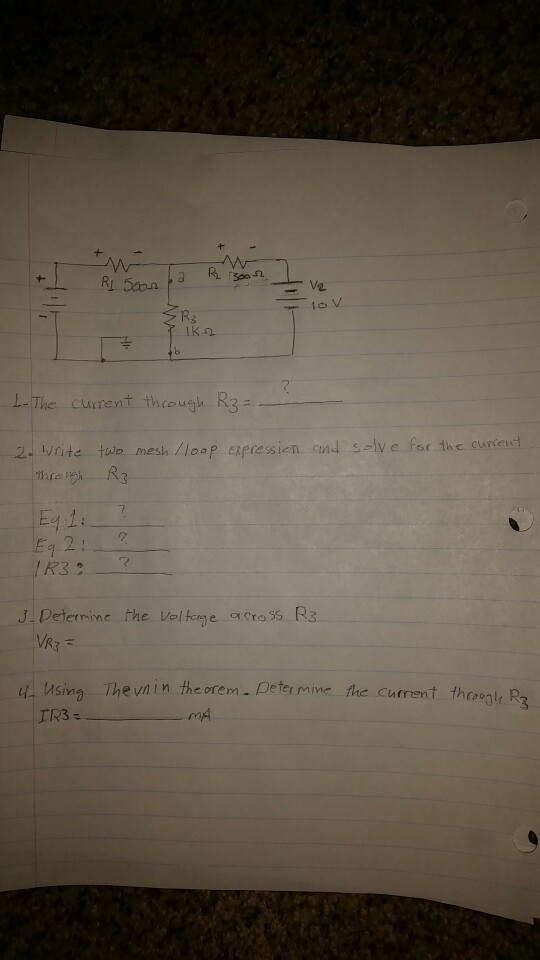 + - + -
+ R1 500Ω a R2 300Ω V2
- R3 10 V
1KΩ
b
1- The current through R3 = ?
2. Write two mesh / loop expression and solve for the current
through R3
Eq 1: ?
Eq 2: ?
IR3: ?
3- Determine the voltage across R3
VR3 =
4- Using Thevnin theorem. Determine the current through R3
IR3 = mA